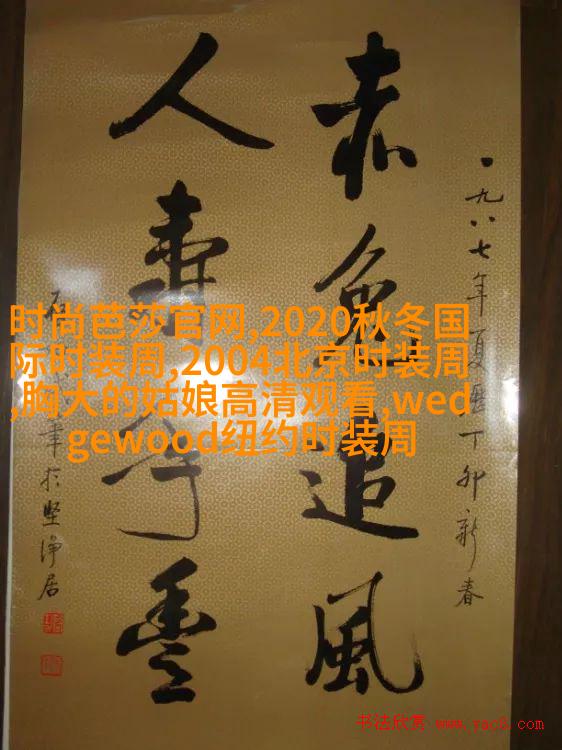 一九八七年夏曆丁卯新春
赤兔追風
人壽年豐
於堅淨居
时尚芭莎官网,2020秋冬国
际时装周,2004北京时装周
,胸大的姑娘高清观看,wed
gewood纽约时装周
书法欣赏 www.yac8.com